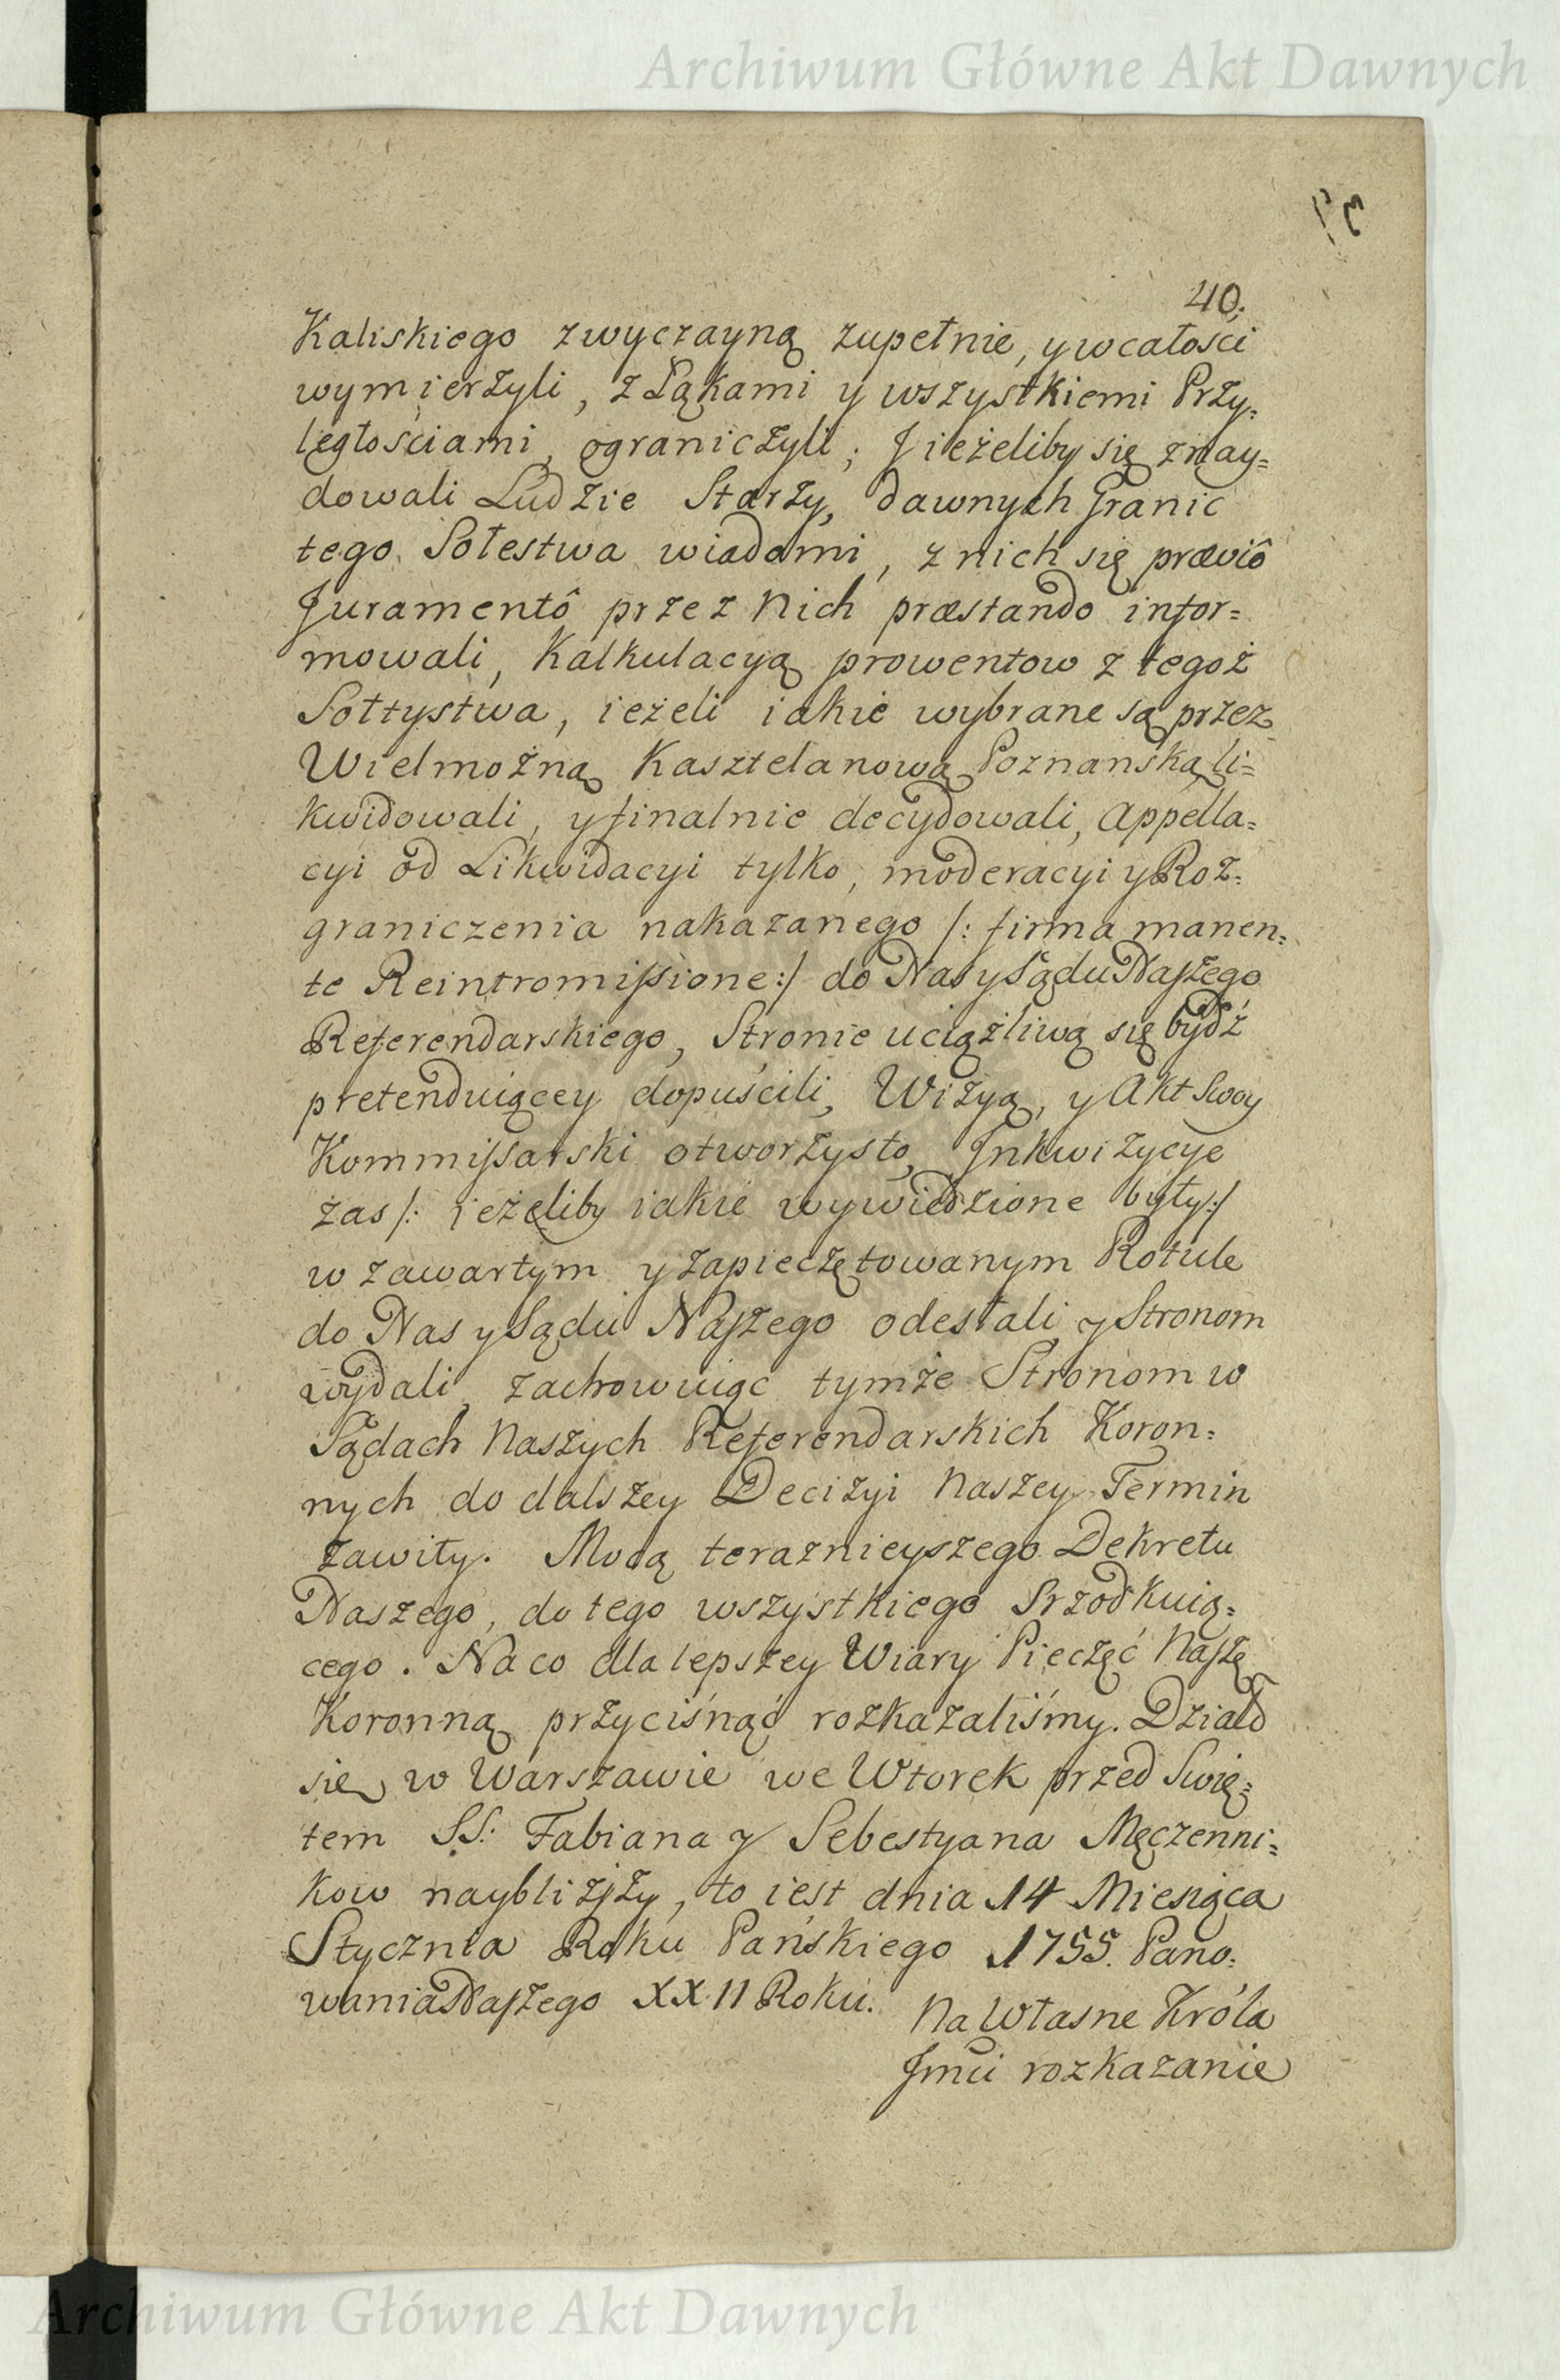 Archiwum Główne Akt Dawnych
40.
Kaliskiego zwyczayną zupełnie, y w całości
wymierzyli, z Łąkami y wszystkiemi Przy=
ległościami, ograniczyli; J ieżeliby się znay=
dowali Ludzie Starzy, dawnych Granic
tego Sołestwa wiadomi, z nich się præviô
Juramentô przez Nich præstando infor=
mowali, Kalkulacyą prowentow z tegoż
Sołtystwa, ieżeli iakie wybrane są przez
Wielmożną Kasztelanową Poznańską li=
kwidowali, y finalnie decydowali, Appella=
cyi od Likwidacyi tylko, moderacyi y Roz=
graniczenia nakazanego /: firma manen=
te Reintromissione :/ do Nas y Sądu Naszego
Referendarskiego, Stronie uciążliwą się bydź
pretenduiącey dopuścili, Wizyą, y Akt Swoy
Kommissarski otworzysto, Jnkwizycye
zas /: ieżeliby iakie wywiedzione były :/
w zawartym y zapieczętowanym Rotule
do Nas y Sądu Naszego odesłali y Stronom
wydali, zachowuiąc tymże Stronom w
Sądach Naszych Referendarskich Koron=
nych do dalszey Decizyi Naszey Termin
zawity. Mocą teraznieyszego Dekretu
Naszego, do tego wszystkiego Srzodkuią=
cego. Na co dla lepszey Wiary Pieczęć Naszą
Koronną przyciśnąć rozkazaliśmy. Działo
się w Warszawie we Wtorek przed Swię=
tem SS: Fabiana y Sebestyana Męczenni=
kow nayblizszy, to iest dnia 14 Miesiąca
Stycznia Roku Pańskiego 1755. Pano=
wania Naszego XXII Roku.
Na Własne Króla
Jmci rozkazanie
Archiwum Główne Akt Dawnych